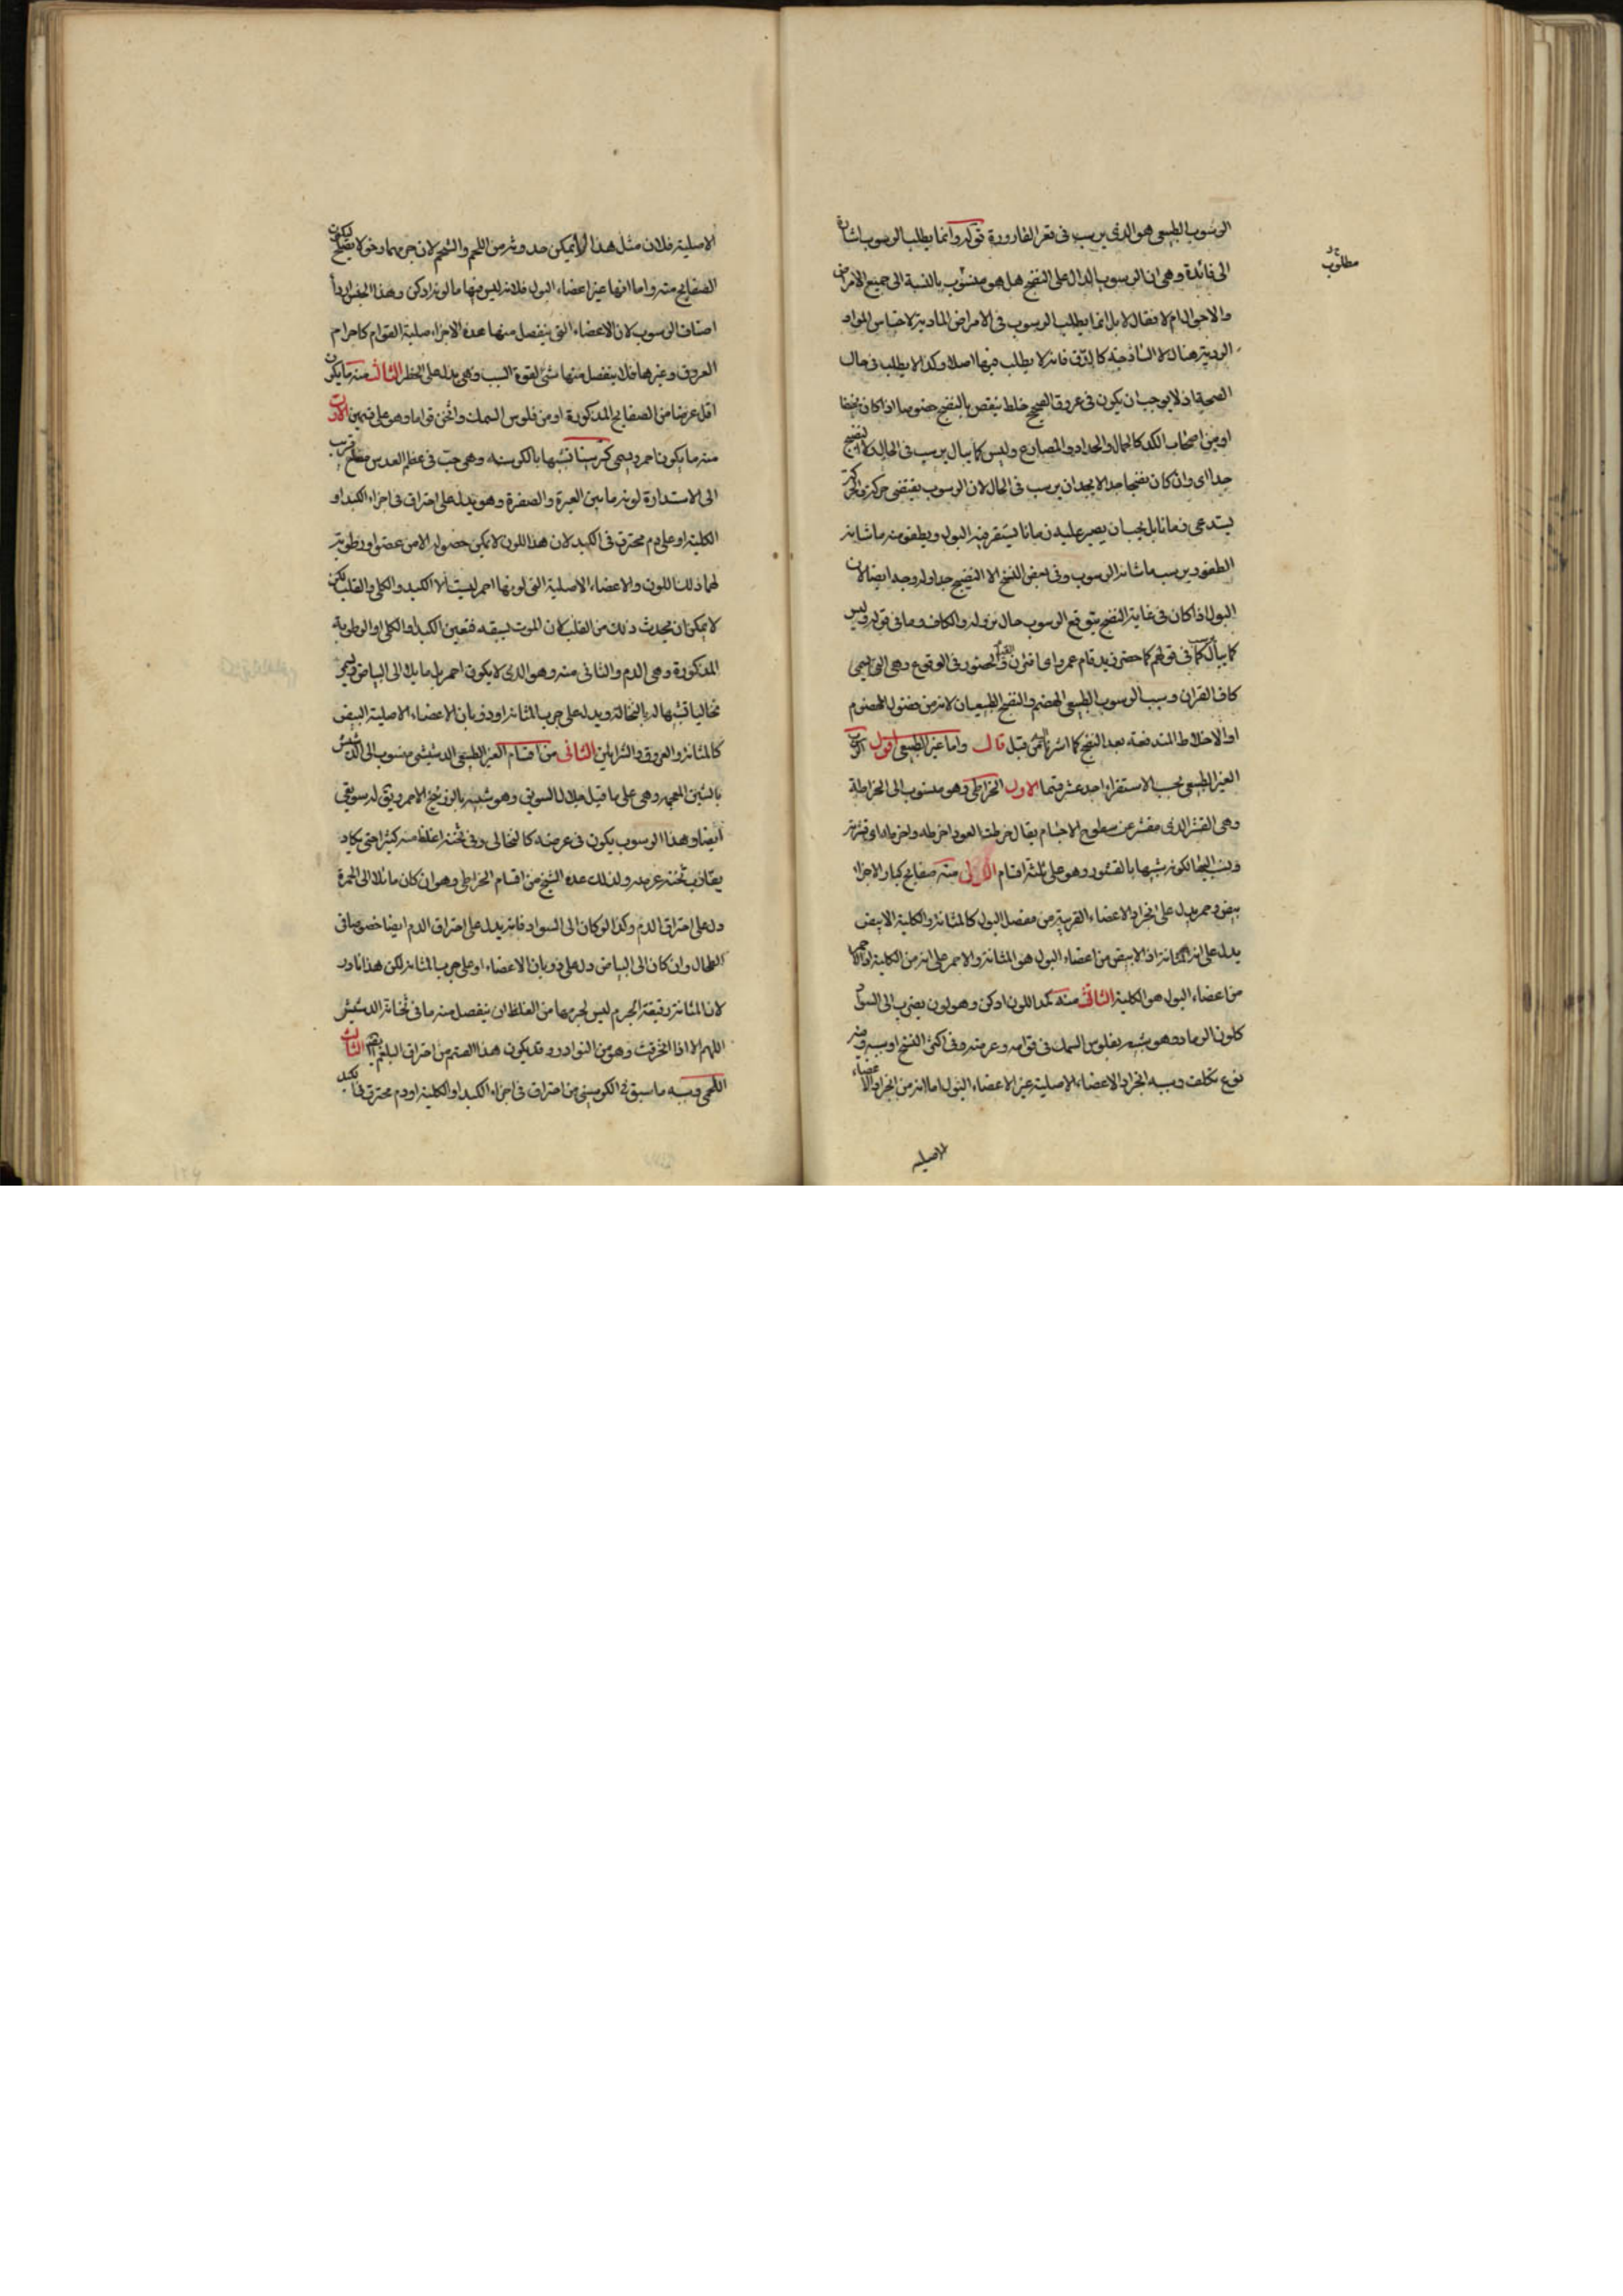 الرسوب الطبيعى هو الذى يرسب فى قعر القارورة قوله وانما يطلب الرسوب اشارة
الى فائدة وهى ان الرسوب الدال على النضج هل هو منسوب بالنسبة الى جميع الامراض
مطلوب
والاحوال ام لا فقال لا بل انما يطلب الرسوب فى الامراض المادية لاحتباس المواد
الردية هناك لا الساذجة كالدق فانه لا يطلب فيها اصلا وكذا لا يطلب فى حال
الصحة اذ لا يوجب ان يكون فى عروق الصحيح خلط ينقص بالنضج خصوصا اذا كان نحيفا
او من اصحاب الكد كالحمال والحداد والمصارع وليس كما يبال يرسب فى الحال الا النضيج
جدا اى وان كان نضجا جدا لا يجب ان يرسب فى الحال لان الرسوب يقتضى حركة والحركة
يستدعى زمانا بل يجب ان يصبر عليه زمانا يستقر فيه البول ويطفو منه ما شانه
الطفو ويرسب ما شانه الرسوب وفى بعض النسخ الا النضيج جدا وله وجه ايضا لان
البول اذا كان فى غاية النضج يتوقع الرسوب حال نزوله والكاف وما فى قوله وليس
كما يبال كما فى قولهم كما حضر زيد قام عمرو اى اقترن الحضور فى الوقوع وهى التى تسمى
كاف القران وسبب الرسوب الطبيعى الهضم والنضج الطبيعيان لانه من فضول الهضوم
او الاخلاط المندفعة بعد النضج كما اشرنا من قبل قال واما غير الطبيعى اقول الرسوب
الغير الطبيعى بحسب الاستقراء احد عشر قسما الاول الخراطى وهو منسوب الى الخراطة
وهى القشر الذى مقشر عن سطوح الاجسام يقال خرطت العود اخرطه واخرطه اى قشرته
ونسب اليها لكونه شبيها بالقشور وهو على ثلثة اقسام الاول منه صفايح كبار الاجزاء
بيض وحمر يدل على انجراد الاعضاء القريبة من مفصل البول كالمثانة والكلية الابيض
يدل على انه المثانة اذ الابيض من اعضاء البول هو المثانة والاحمر على انه من الكلية اذ الاحمر
من اعضاء البول هو الكلية الثانى منه كمد اللون ادكن وهو لون يضرب الى السواد
كلون الرماد وهو شبيه بفلوس السمك فى قوامه وعرضه وفى اكثر النسخ او سببه وفيه
نوع تكلف وسببه انجراد الاعضاء الاصلية غير الاعضاء البول اما انه من انجراد الاعضاء
الاصلية
الاصلية فلان مثل هذا لا يمكن حدوثه من اللحم والشحم لان جرمهما رخو لا يصلح ليكون
الصفايح منه واما انها غير اعضاء البول فلانه ليس فيها ما لونه ادكن وهذا الجنس اردأ
اصناف الرسوب لان الاعضاء التى ينفصل منها هذه الاجزاء صلبة القوام كاجرام
العروق وغيرها فلا ينفصل منها شئ لقوة السبب وهى يدل على الخطر الثالث منه ما يكون
اقل عرضا من الصفايح المذكورة او من فلوس السمك واثخن قواما وهو على قسمين الاول
منه ما يكون احمر ويسمى كرسنيا تشبها بالكرسنه وهى حب فى عظم العدس مضلع قريب
الى الاستدارة لونه ما بين الغبرة والصفرة وهو يدل على احتراق فى اجزاء الكبد او
الكلية او على دم محترق فى الكبد لان هذا اللون لا يمكن حصوله الا من عضو او رطوبة
لهما ذلك اللون والاعضاء الاصلية التى لونها احمر ليست الا الكبد والكلى والقلب لكن
لا يمكن ان يحدث ذلك من القلب لان الموت يسبقه فتعين الكبد او الكلى او الرطوبة
المذكورة وهى الدم والثانى منه وهو الذى لا يكون احمر بل مايلا الى البياض ويسمى
نخاليا تشبها له بالنخالة ويدل على جرب المثانة او ذوبان الاعضاء الاصلية البيض
كالمثانة والعروق والشرايين الثانى من اقسام الغير الطبيعى الدشيشى منسوب الى الدشيش
بالشين المعجمة وهى على ما قيل جلال السويق وهو شبيه بالزرنيخ الاحمر ويق له سويقى
ايضا وهذا الرسوب يكون فى عرضه كالنخالى وفى ثخنه اغلظ منه كثيرا حتى يكاد
يقارب ثخنه عرضه ولذلك عده الشيخ من اقسام الخراطى وهو ان كان مائلا الى الحمرة
دل على احتراق الدم وكذا لو كان الى السواد فانه يدل على احتراق الدم ايضا خصوصا فى
الطحال وان كان الى البياض دل على ذوبان الاعضاء او على جرب المثانة لكن هذا نادر
لان المثانة رقيقة الجرم ليس لجرمها من الغلظ ان ينفصل منه ما فى ثخانة الدشيش
اللهم الا اذا انخرقت وهو من النوادر وقد يكون هذا القسم من احتراق البلغم ايضا الثالث
اللحمى وسببه ما سبق فى الكرسنى من احتراق فى اجزاء الكبد او الكلية او دم محترق فى الكبد